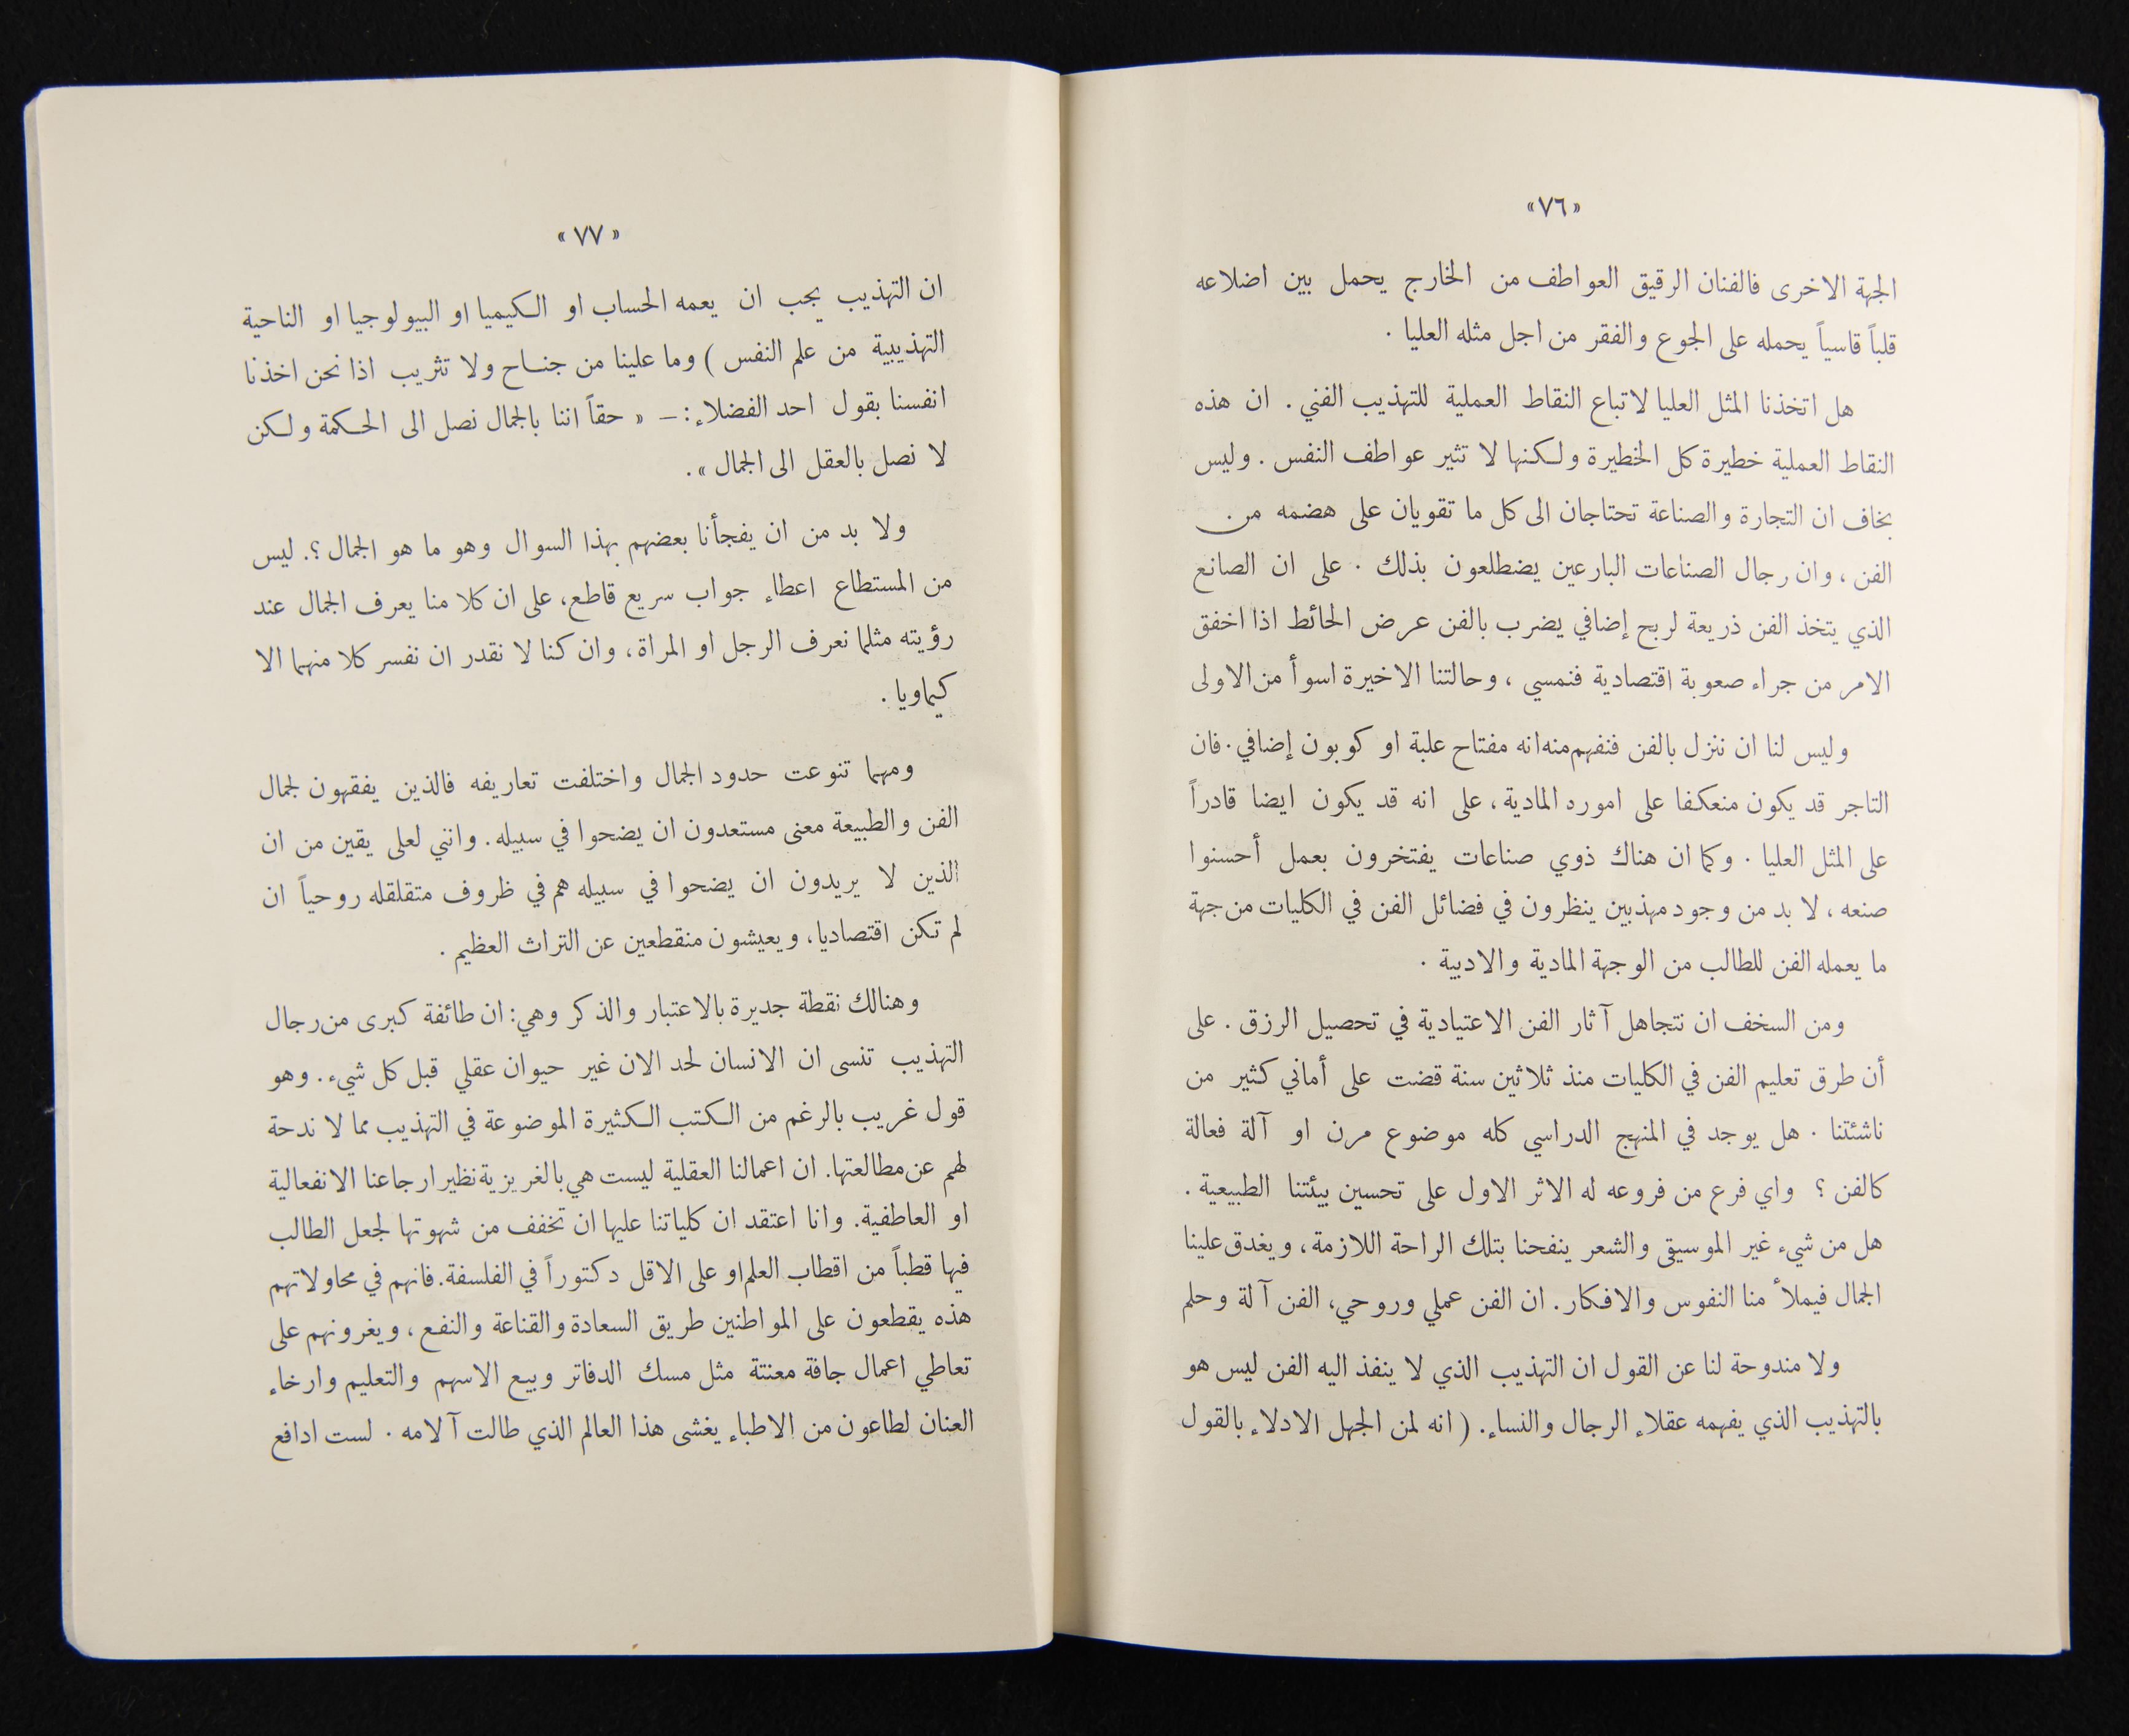 «٧٦»
الجهة الاخرى فالفنان الرقيق العواطف من الخارج يحمل بين اضلاعه
قلباً قاسياً يحمله على الجوع والفقر من اجل مثله العليا .
هل اتخذنا المثل العليا لاتباع النقاط العملية للتهذيب الفني . ان هذه
النقاط العملية خطيرة كل الخطيرة ولكنها لا تثير عواطف النفس . وليس
بخاف ان التجارة والصناعة تحتاجان الى كل ما تقويان على هضمه من
الفن ، وان رجال الصناعات البارعين يضطلعون بذلك . على ان الصانع
الذي يتخذ الفن ذريعة لربح إضافي يضرب بالفن عرض الحائط اذا اخفق
الامر من جراء صعوبة اقتصادية فنمسي ، وحالتنا الاخيرة اسوأ من الاولى
وليس لنا ان ننزل بالفن فنفهم منه انه مفتاح علبة او كوبون إضافي . فان
التاجر قد يكون منعكفا على اموره المادية ، على انه قد يكون ايضا قادراً
على المثل العليا . وكما ان هناك ذوي صناعات يفتخرون بعمل أحسنوا
صنعه ، لا بد من وجود مهذبين ينظرون في فضائل الفن في الكليات من جهة
ما يعمله الفن للطالب من الوجهة المادية والادبية .
ومن السخف ان نتجاهل آثار الفن الاعتيادية في تحصيل الرزق . على
أن طرق تعليم الفن في الكليات منذ ثلاثين سنة قضت على أماني كثير من
ناشئتنا . هل يوجد في المنهج الدراسي كله موضوع مرن او آلة فعالة
كالفن ؟ واي فرع من فروعه له الاثر الاول على تحسين بيئتنا الطبيعية .
هل من شيء غير الموسيقى والشعر ينفحنا بتلك الراحة اللازمة ، ويغدق علينا
الجمال فيملأ منا النفوس والافكار . ان الفن عملي وروحي ، الفن آلة وحلم
ولا مندوحة لنا عن القول ان التهذيب الذي لا ينفذ اليه الفن ليس هو
بالتهذيب الذي يفهمه عقلاء الرجال والنساء . ( انه لمن الجهل الادلاء بالقول
«٧٧»
ان التهذيب يجب ان يعمه الحساب او الكيميا او البيولوجيا او الناحية
التهذيبية من علم النفس ) وما علينا من جناح ولا تثريب اذا نحن اخذنا
انفسنا بقول احد الفضلاء : – « حقاً اننا بالجمال نصل الى الحكمة ولكن
لا نصل بالعقل الى الجمال » .
ولا بد من ان يفجأنا بعضهم بهذا السوال وهو ما هو الجمال ؟ . ليس
من المستطاع اعطاء جواب سريع قاطع ، على ان كلا منا يعرف الجمال عند
رؤيته مثلما نعرف الرجل او المراة ، وان كنا لا نقدر ان نفسر كلا منهما الا
كيماويا .
ومهما تنوعت حدود الجمال واختلفت تعاريفه فالذين يفقهون لجمال
الفن والطبيعة معنى مستعدون ان يضحوا في سبيله . وانني لعلى يقين من ان
الذين لا يريدون ان يضحوا في سبيله هم في ظروف متقلقله روحياً ان
لم تكن اقتصاديا ، ويعيشون منقطعين عن التراث العظيم .
وهنالك نقطة جديرة بالاعتبار والذكر وهي : ان طائفة كبرى من رجال
التهذيب تنسى ان الانسان لحد الان غير حيوان عقلي قبل كل شيء . وهو
قول غريب بالرغم من الكتب الكثيرة الموضوعة في التهذيب مما لا ندحة
لهم عن مطالعتها . ان اعمالنا العقلية ليست هي بالغريزية نظير ارجاعنا الانفعالية
او العاطفية . وانا اعتقد ان كلياتنا عليها ان تخفف من شهوتها لجعل الطالب
فيها قطباً من اقطاب العلم او على الاقل دكتوراً في الفلسفة . فانهم في محاولاتهم
هذه يقطعون على المواطنين طريق السعادة والقناعة والنفع ، ويغرونهم على
تعاطي اعمال جافة معنتة مثل مسك الدفاتر وبيع الاسهم والتعليم وارخاء
العنان لطاعون من الاطباء يغشى هذا العالم الذي طالت آلامه . لست ادافع